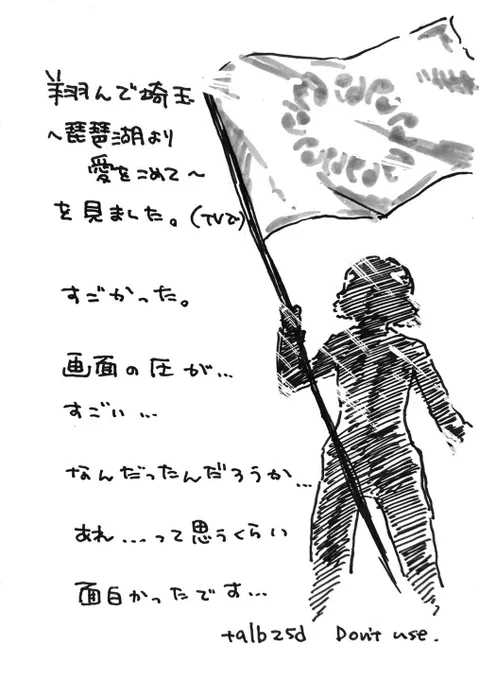 翔んで埼玉
~琵琶湖より
愛をこめて~
を見ました。(TVで)
すごかった。
画面の圧が...
すごい...
なんだったんだろうか...
あれ...って思うくらい
面白かったです...
talb25d Don't use.